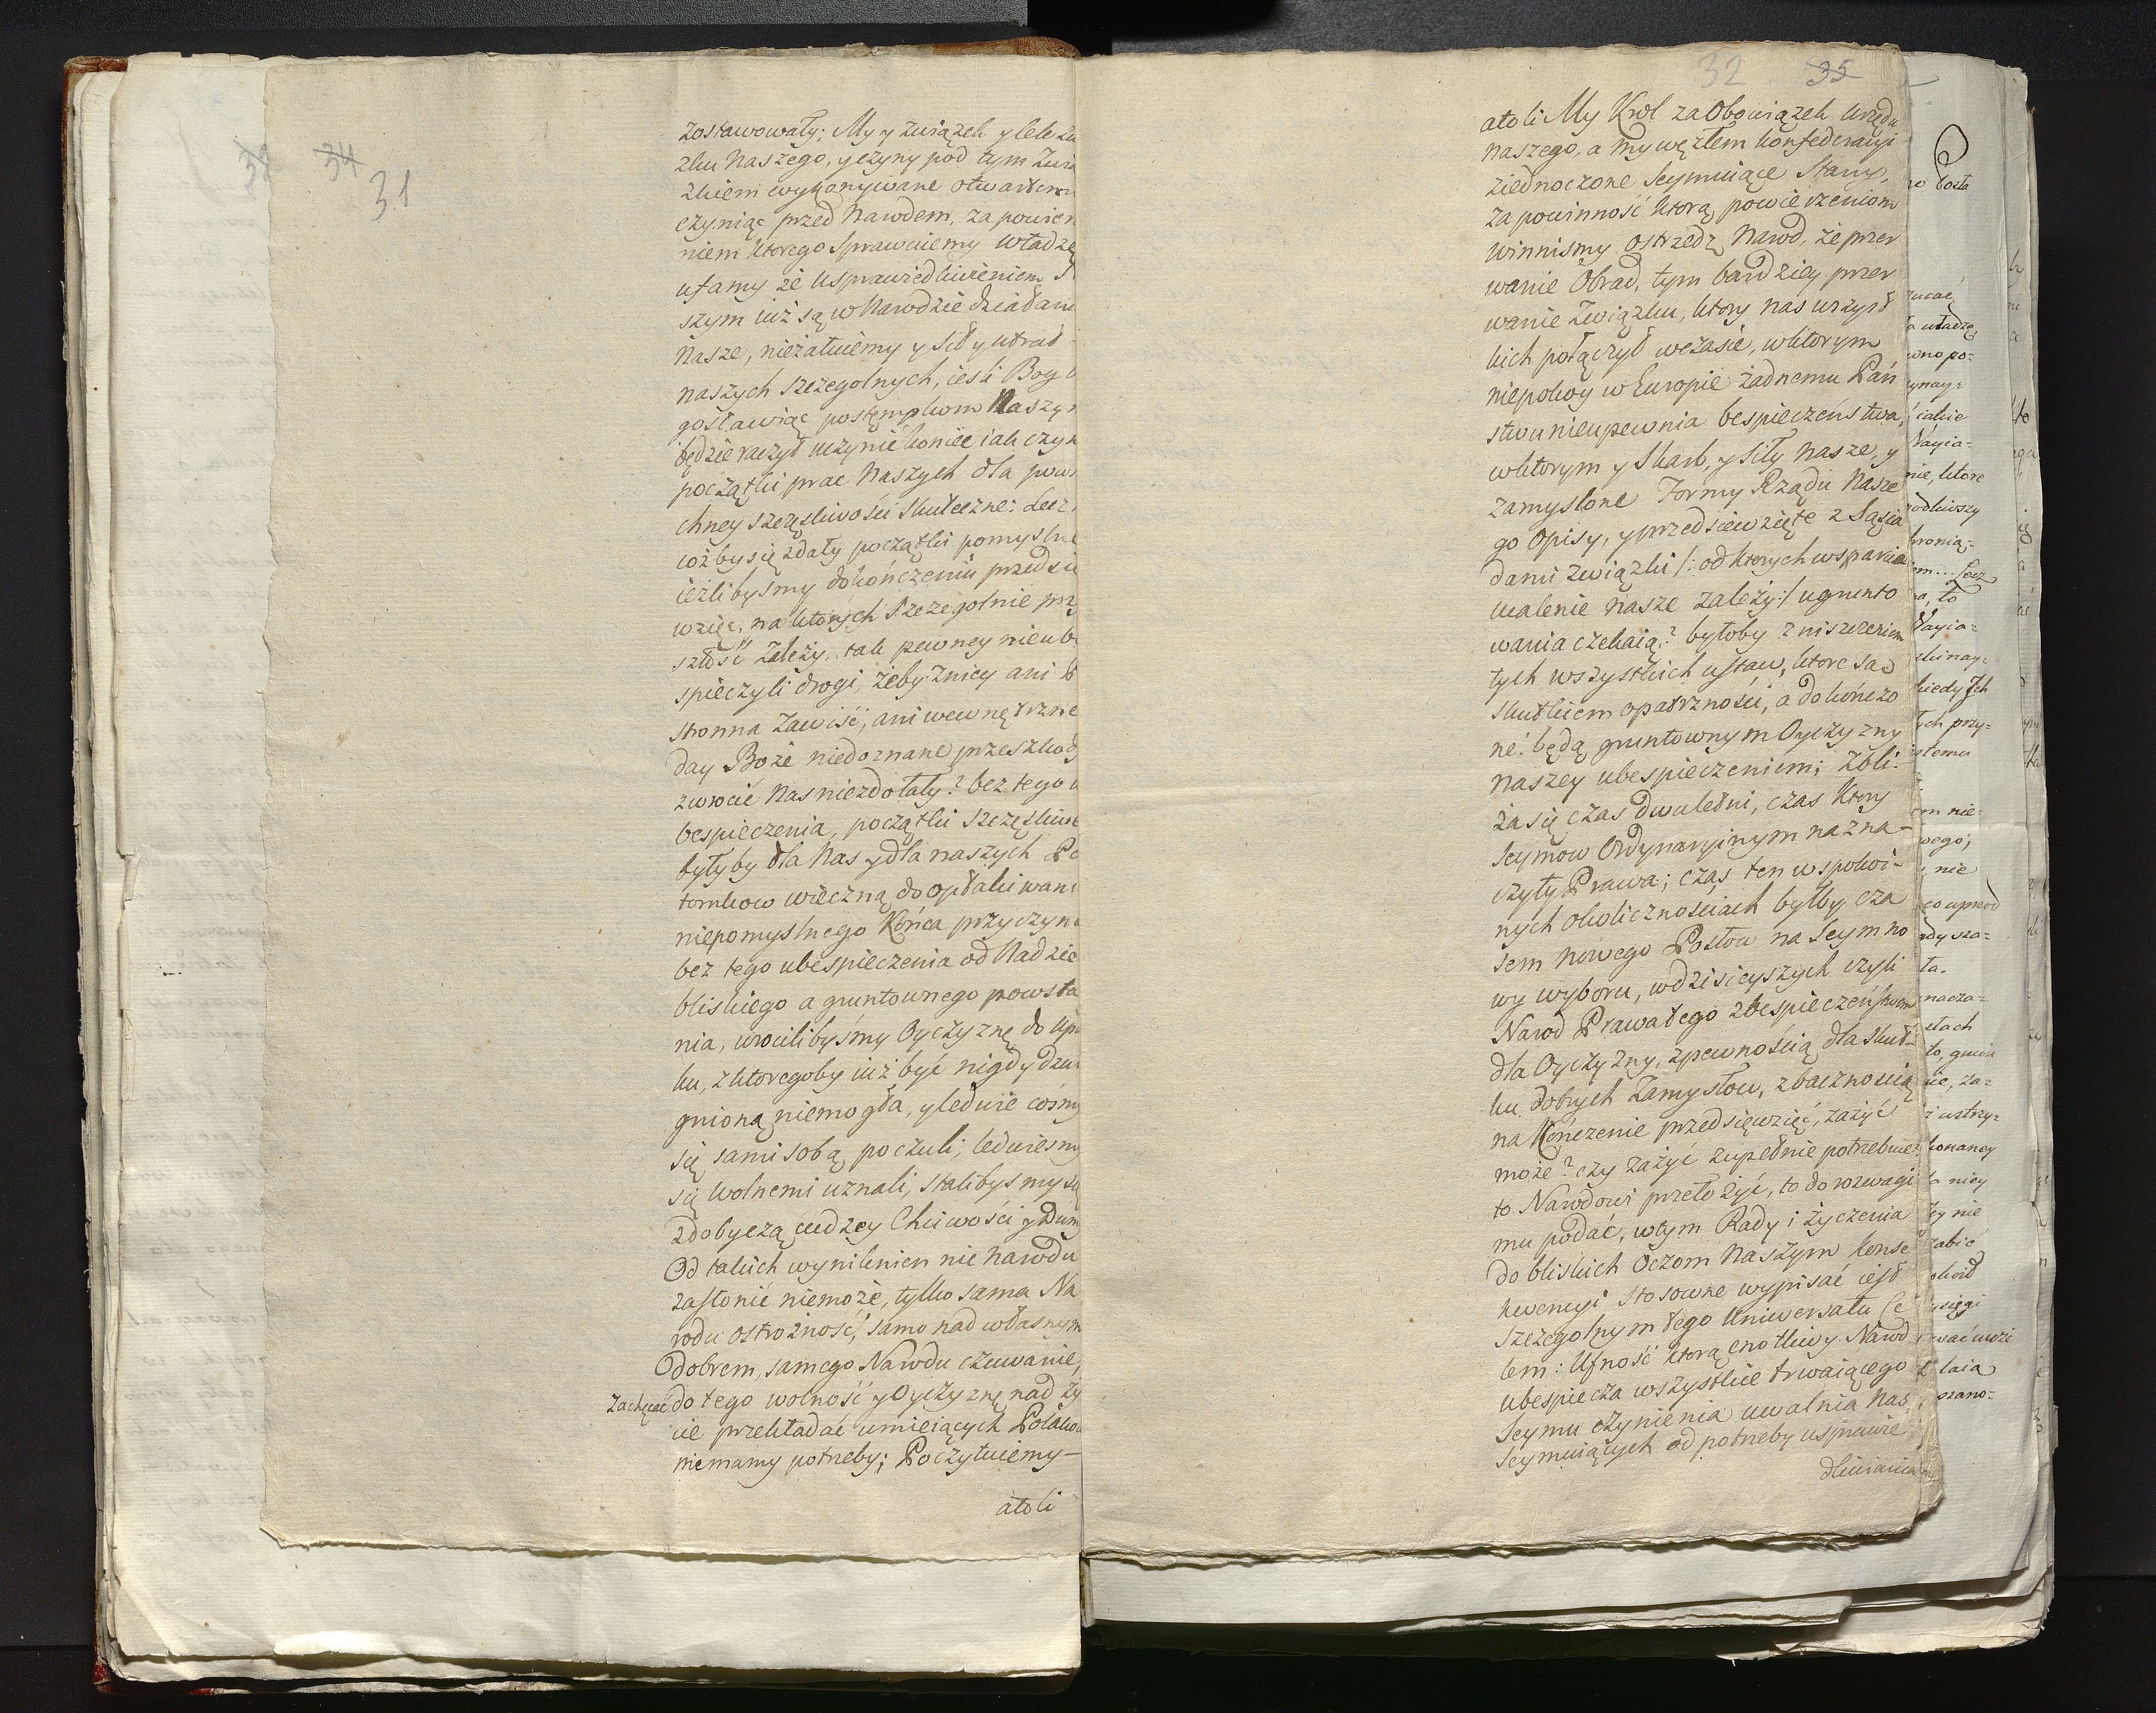 38 34
31
zostawowały; My y związek y cele zw
zku Naszego, y czyny pod tym Zwią
zkiem wykonywane otwartemi
czyniąc przed Narodem, za powierze
niem ktorego Sprawuiemy władzę
ufamy że usprawiedliwieniem
szym iuż są w Narodzie działani
Nasze, nieżałuiemy y Sił y utrat
naszych szczegolnych, iesli Bog b
gosławiąc postęmpkom Naszym
będzie raczył uczynić koniec iak czyn
początki prac Naszych dla pows
chney szczęsliwości skuteczne: Lecz
coż by się zdały początki pomyslne
ieżli bysmy dokończeniu przedsię
wzięć, na ktorych szczegolnie prz
szłość Zależy, tak pewney nieube
spieczyli drogi, żeby Zniey ani p
stronna Zawiść, ani wewnętrzne
day Boże niedoznane przeszkody
zwrocić Nas niezdołały? bez tego u
bespieczenia, początki szczęsliwe
byłyby dla Nas y dla naszych Po
tomkow wieczną do opłakiwani
niepomyslnego Końca przyczyn
bez tego ubespieczenia od Nadzie
bliskiego a gruntownego powsta
nia, wrocilibyśmy Oyczyznę do Upa
ku, z ktoregoby iuż być nigdy dzwi
gnioną niemogła, y ledwie cosmy
się sami sobą poczuli, ledwiesmy
się wolnemi uznali, stalibysmy się
zdobyczą cudzey Chciwości y Dumy
Od takich wyniknien nie Narodu
zasłonić niemoże, tylko sama Na
rodu ostrożność, samo nad własnym
dobrem, samego Narodu czuwanie,
Zachęcać do tego wolność y Oyczyznę nad ży
cie przekładać umieiących Polakow
niemamy potrzeby; Poczytuiemy-
atoli
32 35
atoli My Krol za Obowiązek Urzędu
Naszego, a My węzłem konfederacyi
ziednoczone Seymuiące Stany,
za powinność ktorą powierzeniom
winnismy Ostrzedz Narod, że przer
wanie Obrad, tym bardziey przer
wanie Związku, ktory nas wszyst
kich połączył w czasie, w ktorym
niepokoy w Europie żadnemu Pań
stwu nieupewnia bespieczeństwa,
w ktorym y Skarb, y Siły Nasze, y
zamyslone Formy Rządu Nasze
go Opisy, y przedsiewzięte z Sąsia
dami związki /: od ktorych wsparcia
ocalenie nasze zależy:/ ugrunto
wania czekaią? byłoby zniszczeniem
tych wszystkich ustaw, ktore są
skutkiem opatrzności, a dokończo
ne! będą gruntownym Oyczyzny
naszey ubespieczeniem; Zbli:
ża się czas dwuletni, czas ktory
Seymow Ordynaryinym nazna-
czyły Prawa; czas ten w spokoi-
nych okolicznościach byłby cza
sem nowego Posłow na Seym no
wy wyboru, w dzisieyszych czyli
Narod Prawa tego z bespieczeństwem
dla Oyczyzny, z pewnością dla skut-
ku dobrych Zamysłow, z bacznoscią
na Kończenie przedsięwzięć, zażyć
może? czy zażyć zupełnie potrzebuie?
to Narodowi przełożyć, to do rozwagi
mu podać, w tym Rady i życzenia
do bliskich Oczom Naszym konse
kwencyi stosowne wypisać iest
szczegolnym tego Uniwersału Ce
lem: Ufność ktorą cnotliwy Narod
ubespiecza wszystkie trwaiącego
Seymu czynienia uwalnia Nas
Seymuiących od potrzeby usprawie
dliwiania